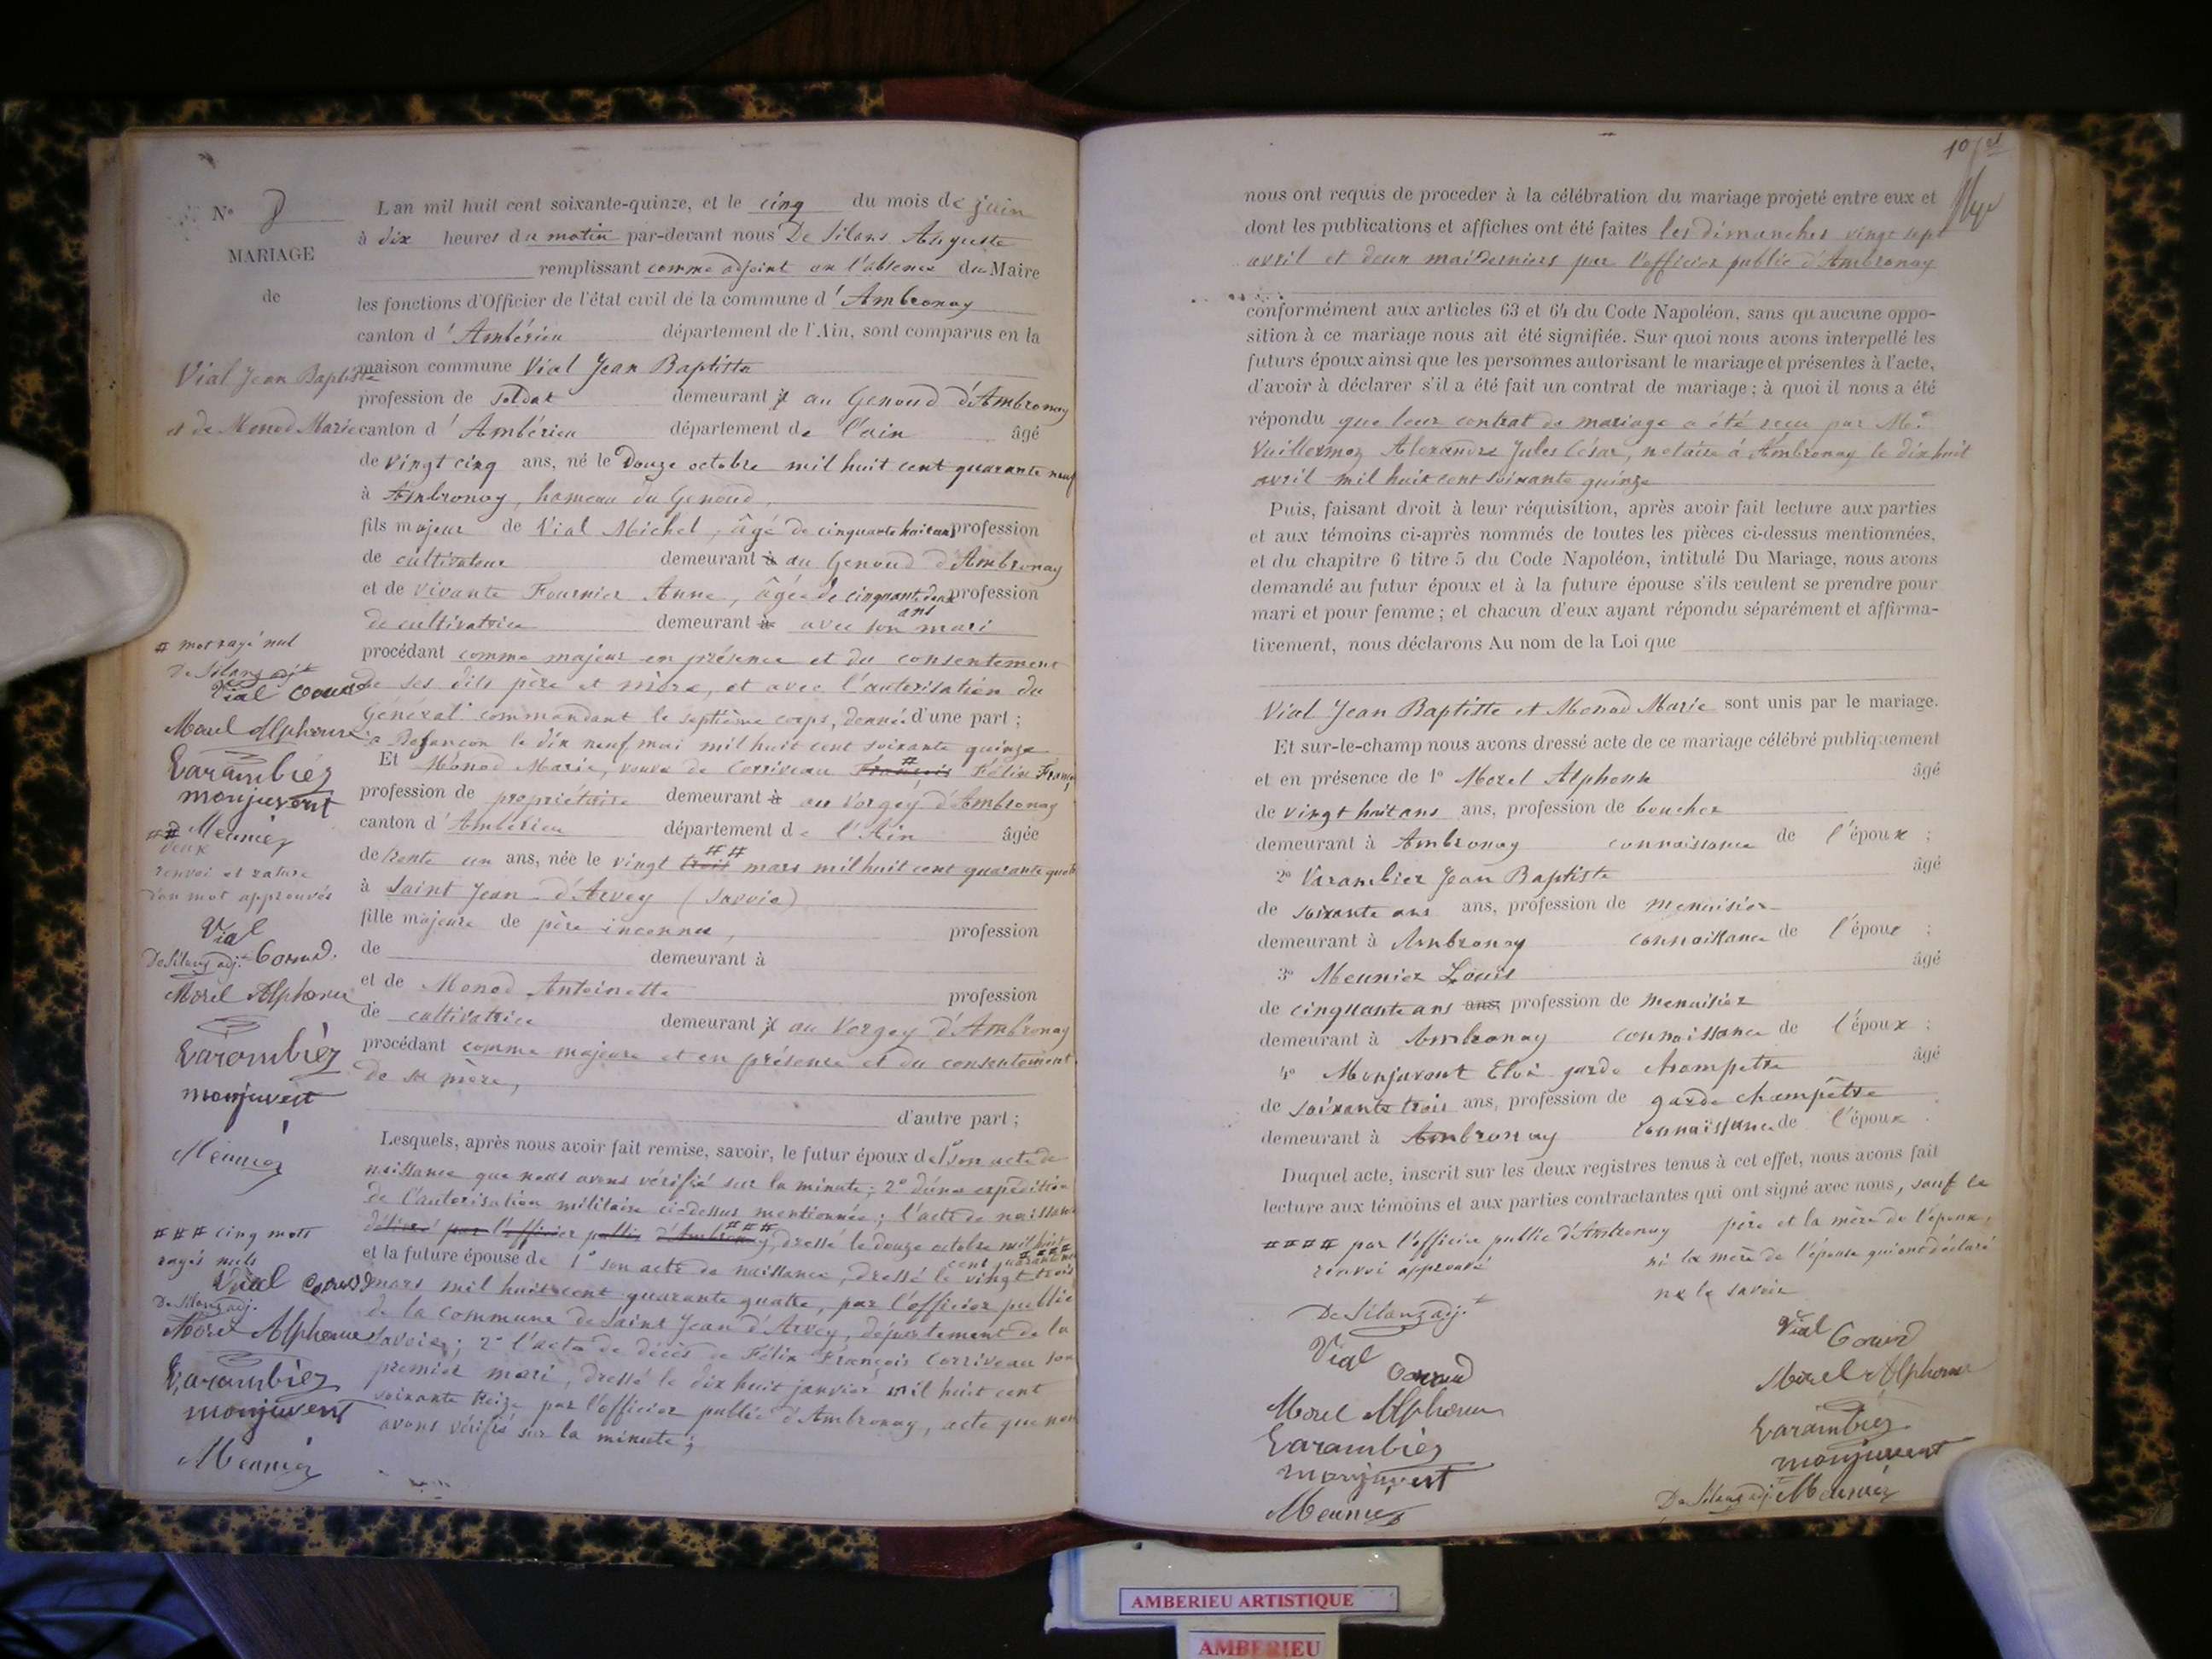 N°
MARIAGE
de
Vial Jean Baptiste
et de Monod Marie
# mot rayé nul
De Silans adjt
Vial
Morel Alphonse
Varambier
monjuvent
Meunier
##
deux
renvoi et rature
d'un mot approuvés
Vial
De Silans adj.
Morel Alphonse
Varambier
monjuvent
Meunier
### cinq mots
rayés nuls
Vial
De Silans adj.
Morel Alphonse
Varambier
monjuvent
Meunier
L'an mil huit cent soixante-quinze, et le cinq du mois de juin
à dix heures du matin par-devant nous De Silans Auguste
remplissant comme adjoint en l'absence du Maire
les fonctions d'Officier de l'état civil de la commune d'Ambronay
canton d'Ambérieu département de l'Ain, sont comparus en la
maison commune Vial Jean Baptiste
profession de soldat demeurant à au Genoud d'Ambronay
canton d'Ambérieu département de l'ain âgé
de vingt cinq ans, né le Douze octobre mil huit cent quarante neuf
à Ambronay, hameau du Genoud,
fils majeur de Vial Michel, âgé de cinquante huit ans profession
de cultivateur demeurant à au Genoud d'Ambronay
et de vivante Fournier Anne, âgée de cinquante deux ans profession
de cultivatrice demeurant à avec son mari
procédant comme majeur en présence et du consentement
de ses dits père et mère, et avec l'autorisation du
Général commandant le septième corps, donnée d'une part ;
à Besançon le dix neuf mai mil huit cent soixante quinze
Et Monod Marie, veuve de Corriveau François # Félix François
profession de propriétaire demeurant à au Vorgey d'Ambronay
canton d'Ambérieu département de l'Ain âgée
de trente un ans, née le vingt trois ## mars mil huit cent quarante quatre
à Saint Jean d'Arvey (Savoie)
fille majeure de père inconnu, profession
de demeurant à
et de Monod Antoinette profession
de cultivatrice demeurant à au Vorgey d'Ambronay
procédant comme majeure et en présence et du consentement
de sa mère,
d'autre part ;
Lesquels, après nous avoir fait remise, savoir, le futur époux de 1° son acte de
naissance que nous avons vérifié sur la minute; 2° d'une expédition
de l'autorisation militaire ci-dessus mentionnée; l'acte de naissance
délivré par l'officier public d'Ambronay ###, dressé le douze octobre mil huit
cent quarante neuf ####
et la future épouse de 1° son acte de naissance, dressé le vingt trois
mars mil huit cent quarante quatre, par l'officier public
de la commune de Saint Jean d'Arvey, département de la
Savoie; 2° l'acte de décès de Félix François Corriveau son
premier mari, dressé le dix huit janvier mil huit cent
soixante treize par l'officier public d'Ambronay, acte que nous
avons vérifié sur la minute;
nous ont requis de proceder à la célébration du mariage projeté entre eux et
dont les publications et affiches ont été faites les dimanches vingt sept
avril et deux mai derniers par l'officier public d'Ambronay
conformément aux articles 63 et 64 du Code Napoléon, sans qu'aucune oppo-
sition à ce mariage nous ait été signifiée. Sur quoi nous avons interpellé les
futurs époux ainsi que les personnes autorisant le mariage et présentes à l'acte,
d'avoir à déclarer s'il a été fait un contrat de mariage ; à quoi il nous a été
répondu que leur contrat de mariage a été reçu par Me
Vuillermoz Alexandre Jules César, notaire à Ambronay le dix huit
avril mil huit cent soixante quinze
Puis, faisant droit à leur réquisition, après avoir fait lecture aux parties
et aux témoins ci-après nommés de toutes les pièces ci-dessus mentionnées,
et du chapitre 6 titre 5 du Code Napoléon, intitulé Du Mariage, nous avons
demandé au futur époux et à la future épouse s'ils veulent se prendre pour
mari et pour femme ; et chacun d'eux ayant répondu séparément et affirma-
tivement, nous déclarons Au nom de la Loi que
Vial Jean Baptiste et Monod Marie sont unis par le mariage.
Et sur-le-champ nous avons dressé acte de ce mariage célébré publiquement
et en présence de 1° Morel Alphonse âgé
de vingt huit ans ans, profession de boucher
demeurant à Ambronay connaissance de l'époux ;
2° Varambier Jean Baptiste âgé
de soixante ans ans, profession de menuisier
demeurant à Ambronay connaissance de l'époux ;
3° Meunier Louis âgé
de cinquante ans ans, profession de menuisier
demeurant à Ambronay connaissance de l'époux ;
4° Monjuvent Eloi garde champetre âgé
de soixante trois ans, profession de garde champêtre
demeurant à Ambronay connaissance de l'époux .
Duquel acte, inscrit sur les deux registres tenus à cet effet, nous avons fait
lecture aux témoins et aux parties contractantes qui ont signé avec nous, sauf le
père et la mère de l'époux,
ni la mère de l'épouse qui ont déclaré
ne le savoir
#### par l'officier public d'Ambronay
renvoi approuvé
De Silans adjt
Vial
Morel Alphonse
Varambier
monjuvent
Meunier
Vial
Morel Alphonse
Varambier
monjuvent
De Silans adjt Meunier
AMBERIEU ARTISTIQUE
AMBERIEU